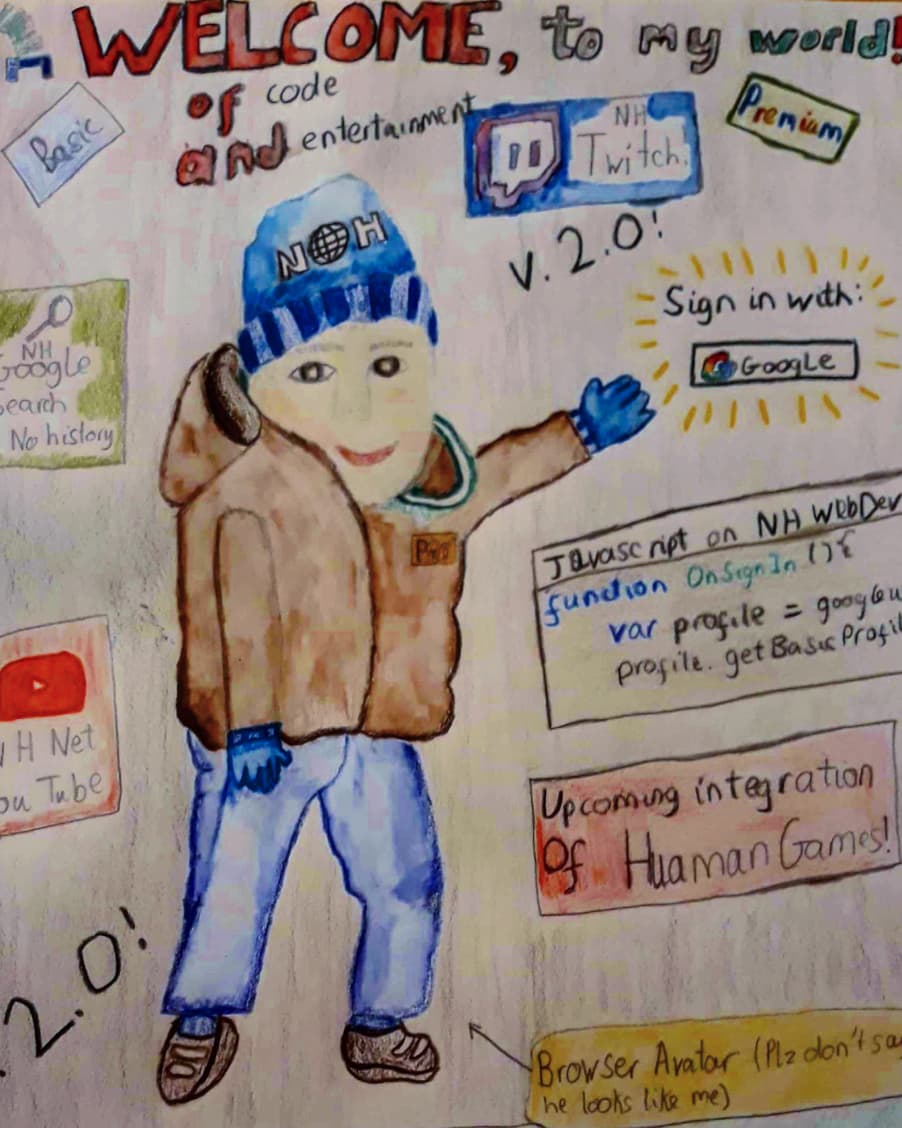 WELCOME, to my world!
of code
and entertainment
Basic
NH
Twitch.
Premium
v. 2.0!
NH
Sign in with:
Google
NH
Google
Search
No history
Javascript on NH WebDev
function OnSignIn (){
var profile = googleu
profile. getBasicProfil
H Net
You Tube
Upcoming integration
Of Huaman Games!
. 2.0!
Browser Avatar (Plz don't say
he looks like me)